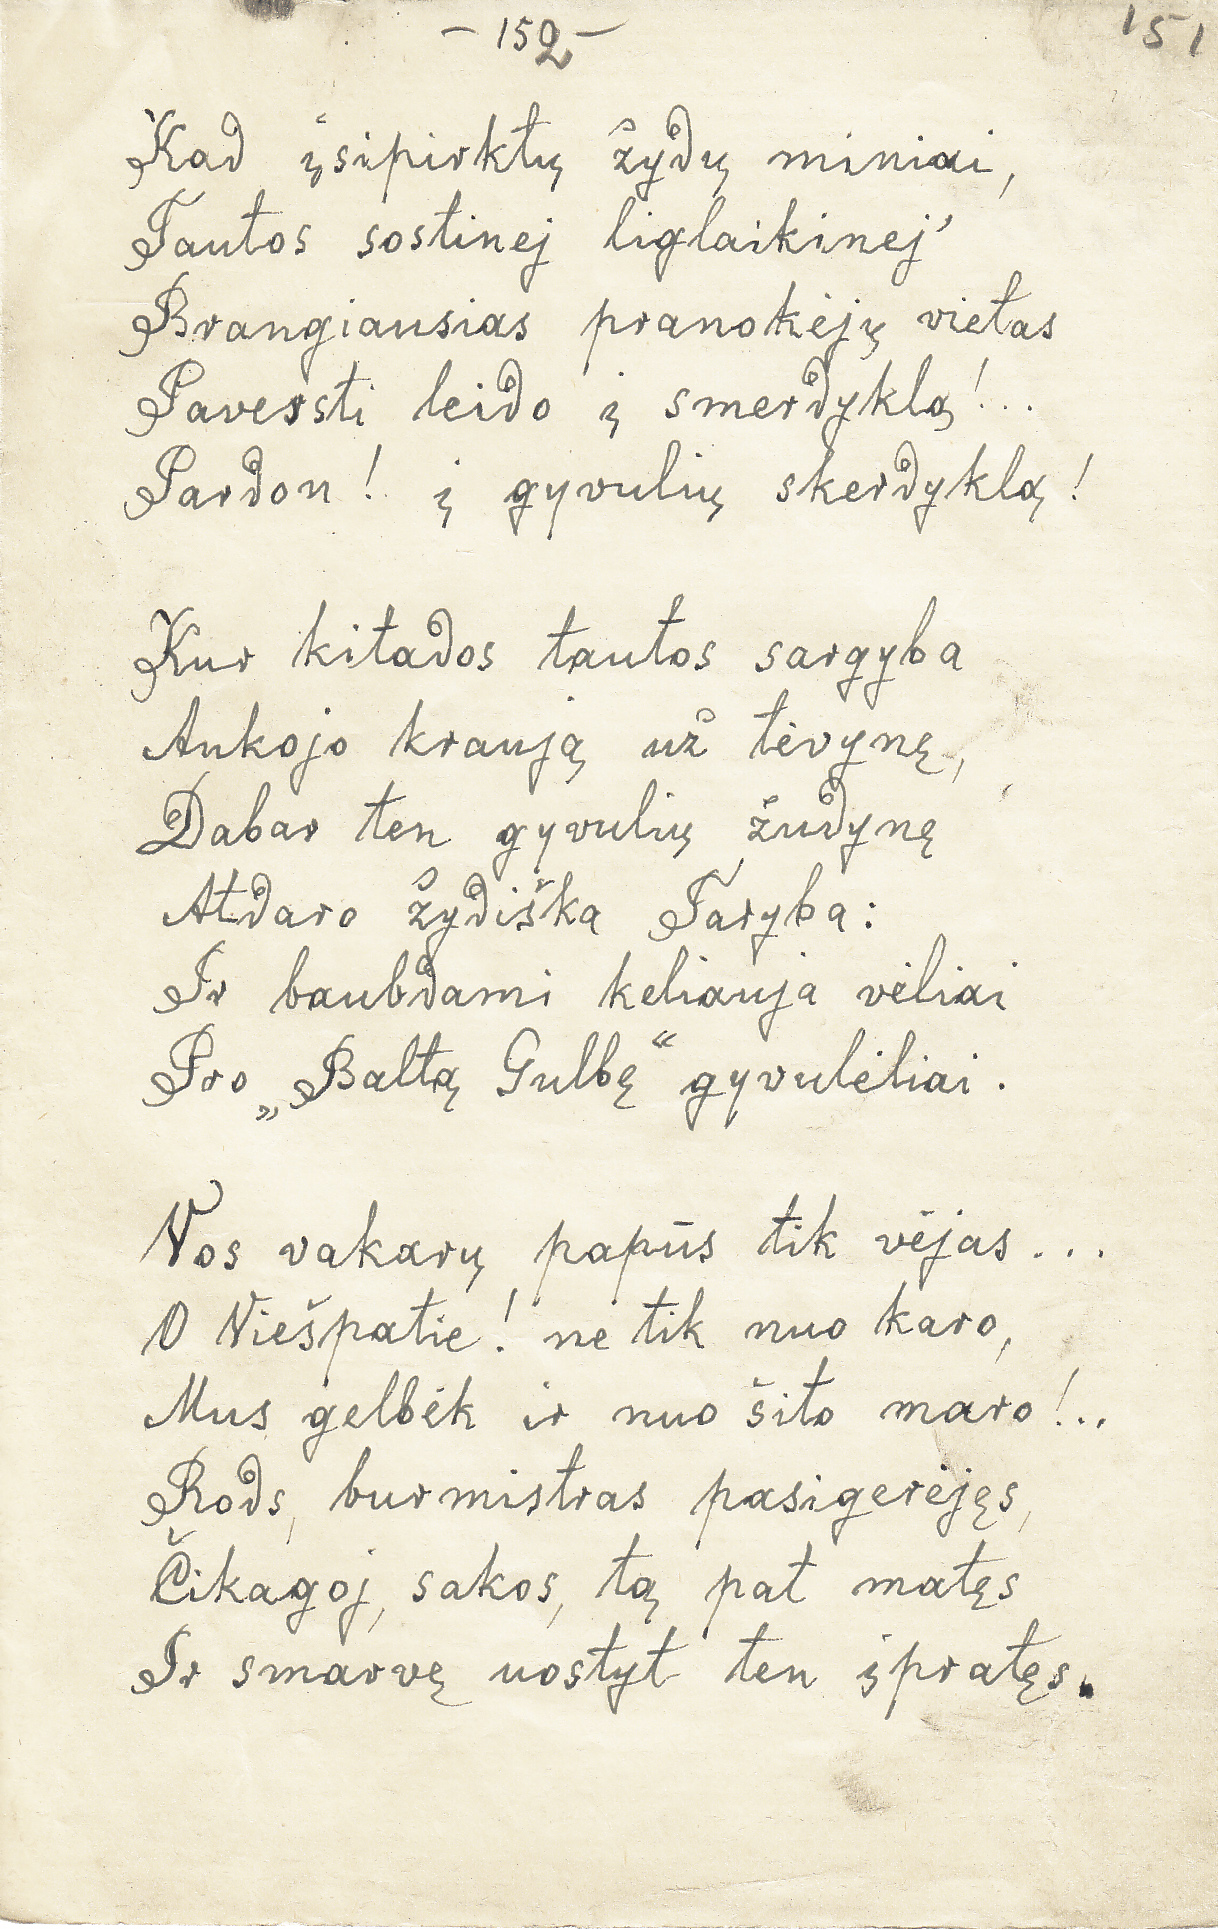 – 152 –
151
Kad įsipirktų žydų miniai,
Tautos sostinej liglaikinej'
Brangiausias pranokėjų vietas
Paversti leido į smerdyklą!..
Pardon! į gyvulių skerdyklą!
Kur kitados tautos sargyba
Aukojo kraują už tėvynę,
Dabar ten gyvulių žudynę
Atdaro žydiška Taryba:
Ir baubdami keliauja vėliai
Pro „Baltą Gulbę“ gyvulėliai.
Nos vakarų papūs tik vėjas...
O Viešpatie! ne tik nuo karo,
Mus gelbėk ir nuo šito maro!..
Rods, burmistras pasigerėjęs,
Čikagoj, sakos, tą pat matęs
Ir smarvę uostyt ten įpratęs.